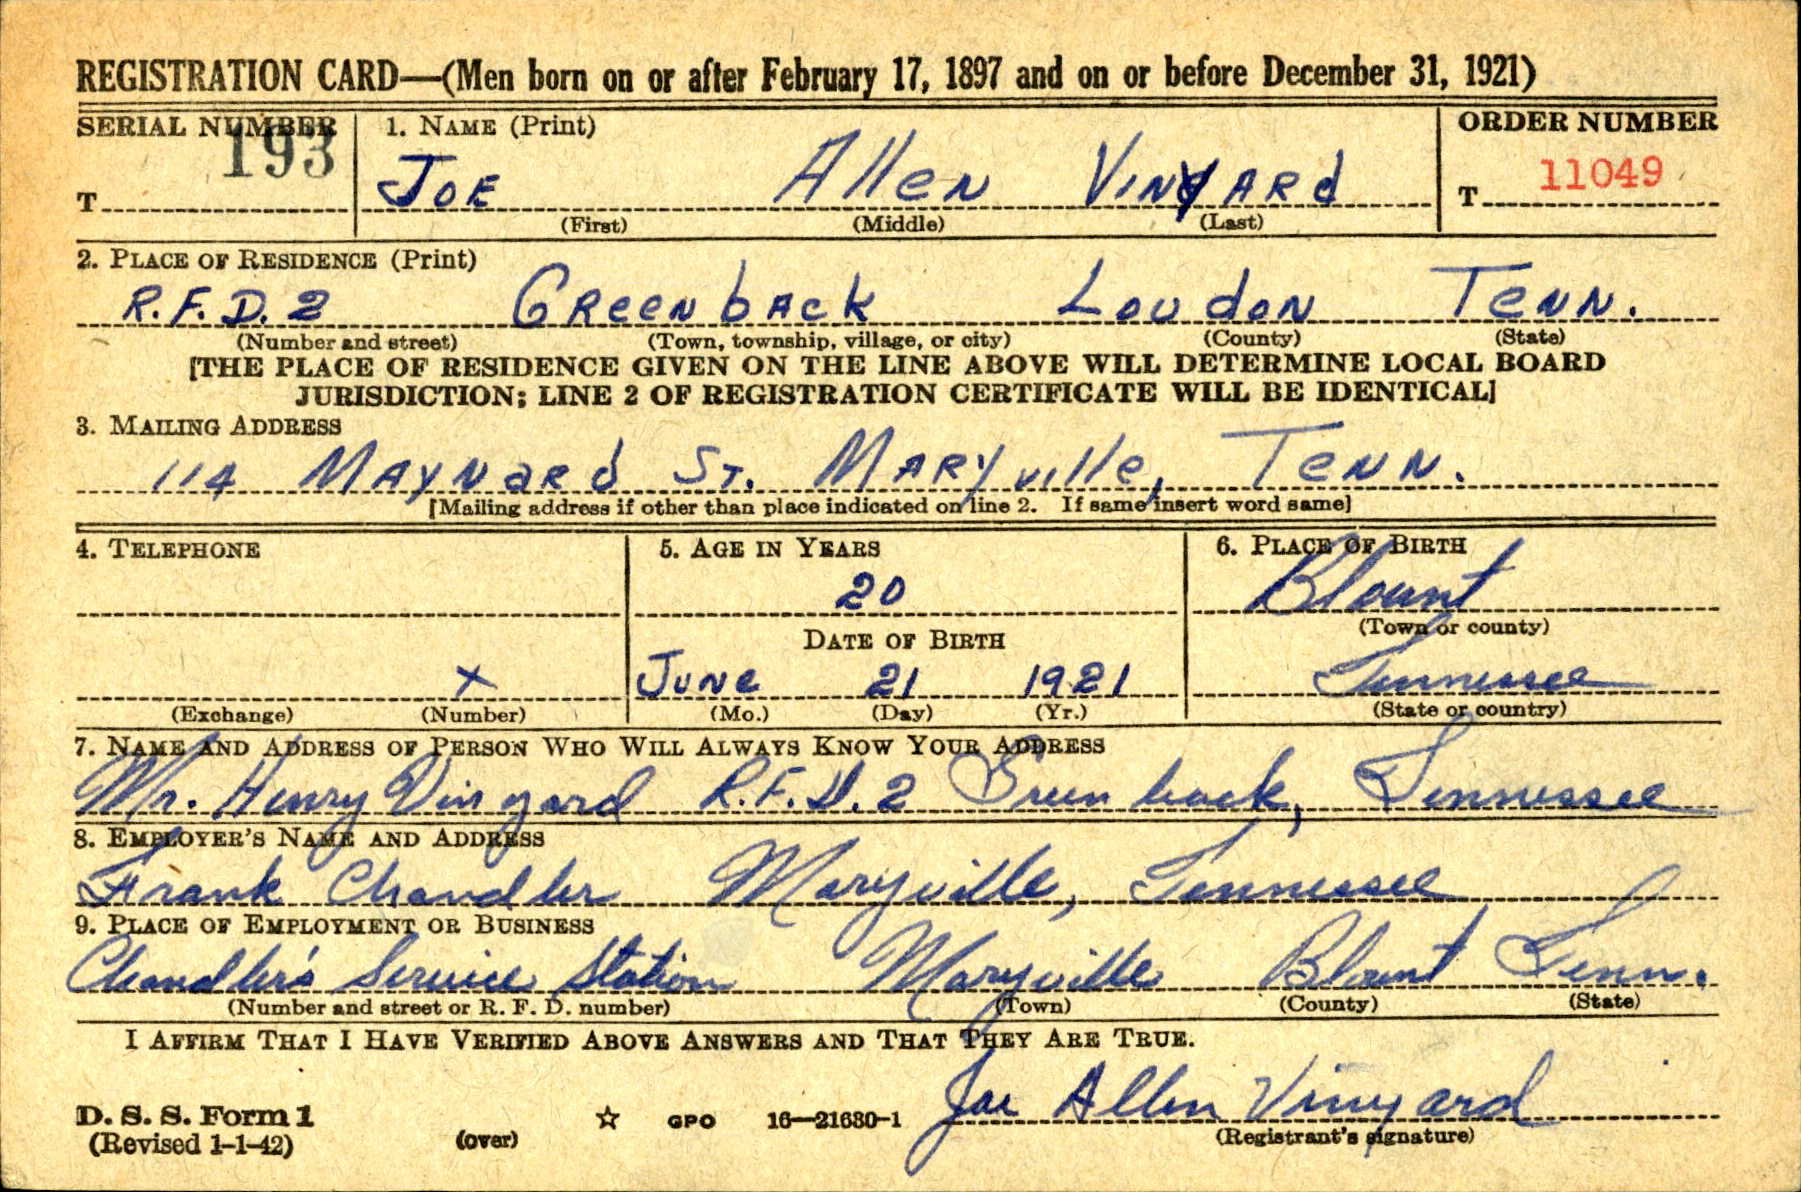 REGISTRATION CARD—(Men born on or after February 17, 1897 and on or before December 31, 1921)
SERIAL NUMBER 1. NAME (Print) ORDER NUMBER
193 11049
T JOE Allen VINYARd T
(First) (Middle) (Last)
2. PLACE OF RESIDENCE (Print)
R.F.D. 2 GReeNbAck LoudoN TeNN.
(Number and street) (Town, township, village, or city) (County) (State)
[THE PLACE OF RESIDENCE GIVEN ON THE LINE ABOVE WILL DETERMINE LOCAL BOARD
JURISDICTION; LINE 2 OF REGISTRATION CERTIFICATE WILL BE IDENTICAL]
3. MAILING ADDRESS
114 MAYNaRd ST. MARYville, TeNN.
[Mailing address if other than place indicated on line 2. If same insert word same]
4. TELEPHONE 5. AGE IN YEARS 6. PLACE OF BIRTH
20 Blount
(Town or county)
DATE OF BIRTH
x JuNe 21 1921 Tennessee
(Exchange) (Number) (Mo.) (Day) (Yr.) (State or country)
7. NAME AND ADDRESS OF PERSON WHO WILL ALWAYS KNOW YOUR ADDRESS
Mr. Henry Vinyard R.F.D. 2 Greenback, Tennessee
8. EMPLOYER'S NAME AND ADDRESS
Frank Chandler Maryville, Tennessee
9. PLACE OF EMPLOYMENT OR BUSINESS
Chandler's Service Station Maryville Blount Tenn.
(Number and street or R. F. D. number) (Town) (County) (State)
I AFFIRM THAT I HAVE VERIFIED ABOVE ANSWERS AND THAT THEY ARE TRUE.
Joe Allen Vinyard
D. S. S. Form 1 ☆ GPO 16—21630-1
(Revised 1-1-42) (over) (Registrant's signature)